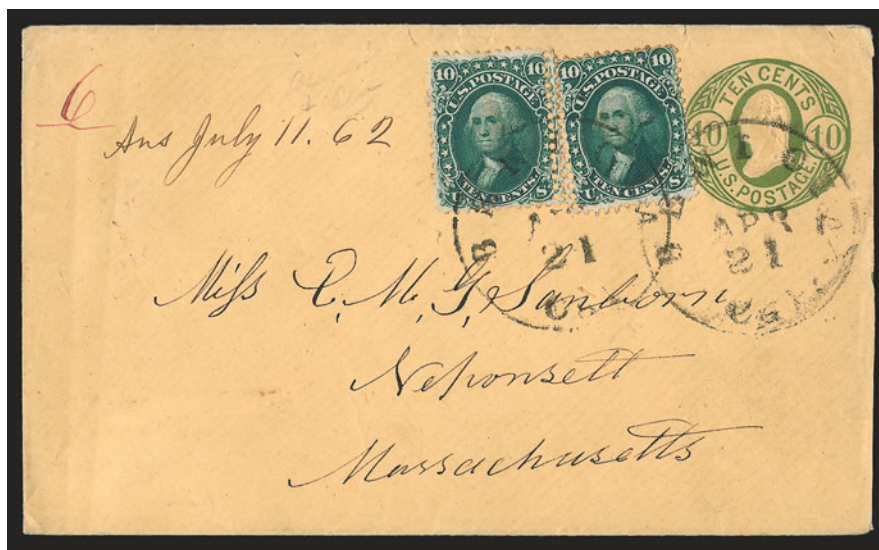 6
Ans July 11. 62
10 10
U.S. POSTAGE
TEN CENTS
U. S.
10 10
U.S. POSTAGE
TEN CENTS
U. S.
TEN CENTS
10 10
U.S. POSTAGE
21
APR
21
Miss C. M. G. Sanborn
Neponsett
Massachusetts